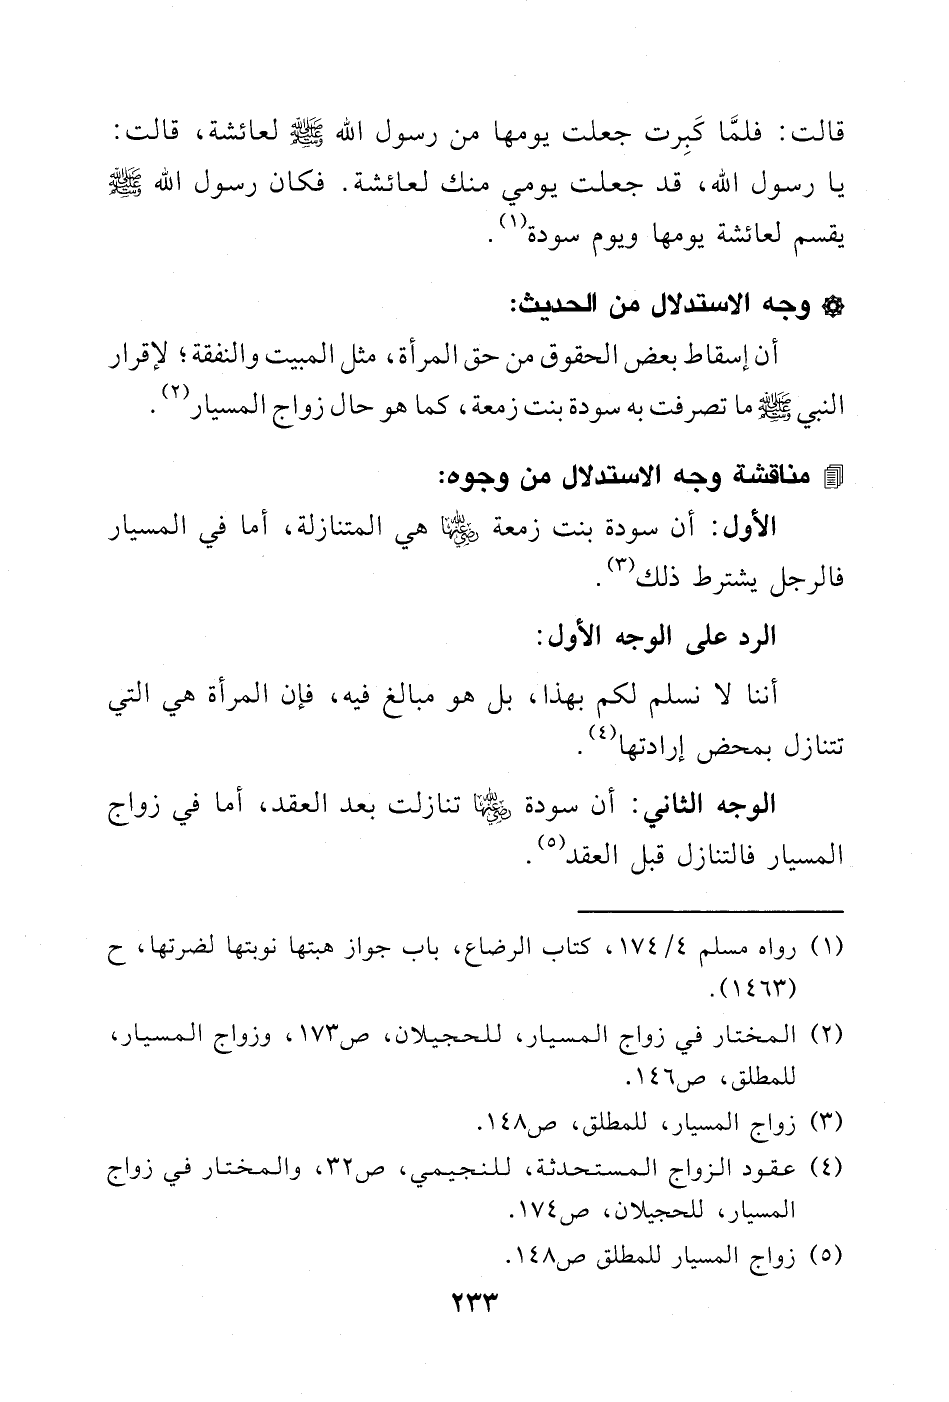 قالت: فلمَّا كَبِرت جعلت يومها من رسول الله ﷺ لعائشة، قالت:
يا رسول الله، قد جعلت يومي منك لعائشة. فكان رسول الله ﷺ
يقسم لعائشة يومها ويوم سودة(١).
۞ وجه الاستدلال من الحديث:
أن إسقاط بعض الحقوق من حق المرأة، مثل المبيت والنفقة؛ لإقرار
النبي ﷺ ما تصرفت به سودة بنت زمعة، كما هو حال زواج المسيار(٢).
مناقشة وجه الاستدلال من وجوه:
الأول: أن سودة بنت زمعة رضي الله عنها هي المتنازلة، أما في المسيار
فالرجل يشترط ذلك(٣).
الرد على الوجه الأول:
أننا لا نسلم لكم بهذا، بل هو مبالغ فيه، فإن المرأة هي التي
تتنازل بمحض إرادتها(٤).
الوجه الثاني: أن سودة رضي الله عنها تنازلت بعد العقد، أما في زواج
المسيار فالتنازل قبل العقد(٥).
(١) رواه مسلم ٤/ ١٧٤، كتاب الرضاع، باب جواز هبتها نوبتها لضرتها، ح
(١٤٦٣).
(٢) المختار في زواج المسيار، للحجيلان، ص١٧٣، وزواج المسيار،
للمطلق، ص١٤٦.
(٣) زواج المسيار، للمطلق، ص١٤٨.
(٤) عقود الزواج المستحدثة، للنجيمي، ص٣٢، والمختار في زواج
المسيار، للحجيلان، ص١٧٤.
(٥) زواج المسيار للمطلق ص١٤٨.
٢٣٣